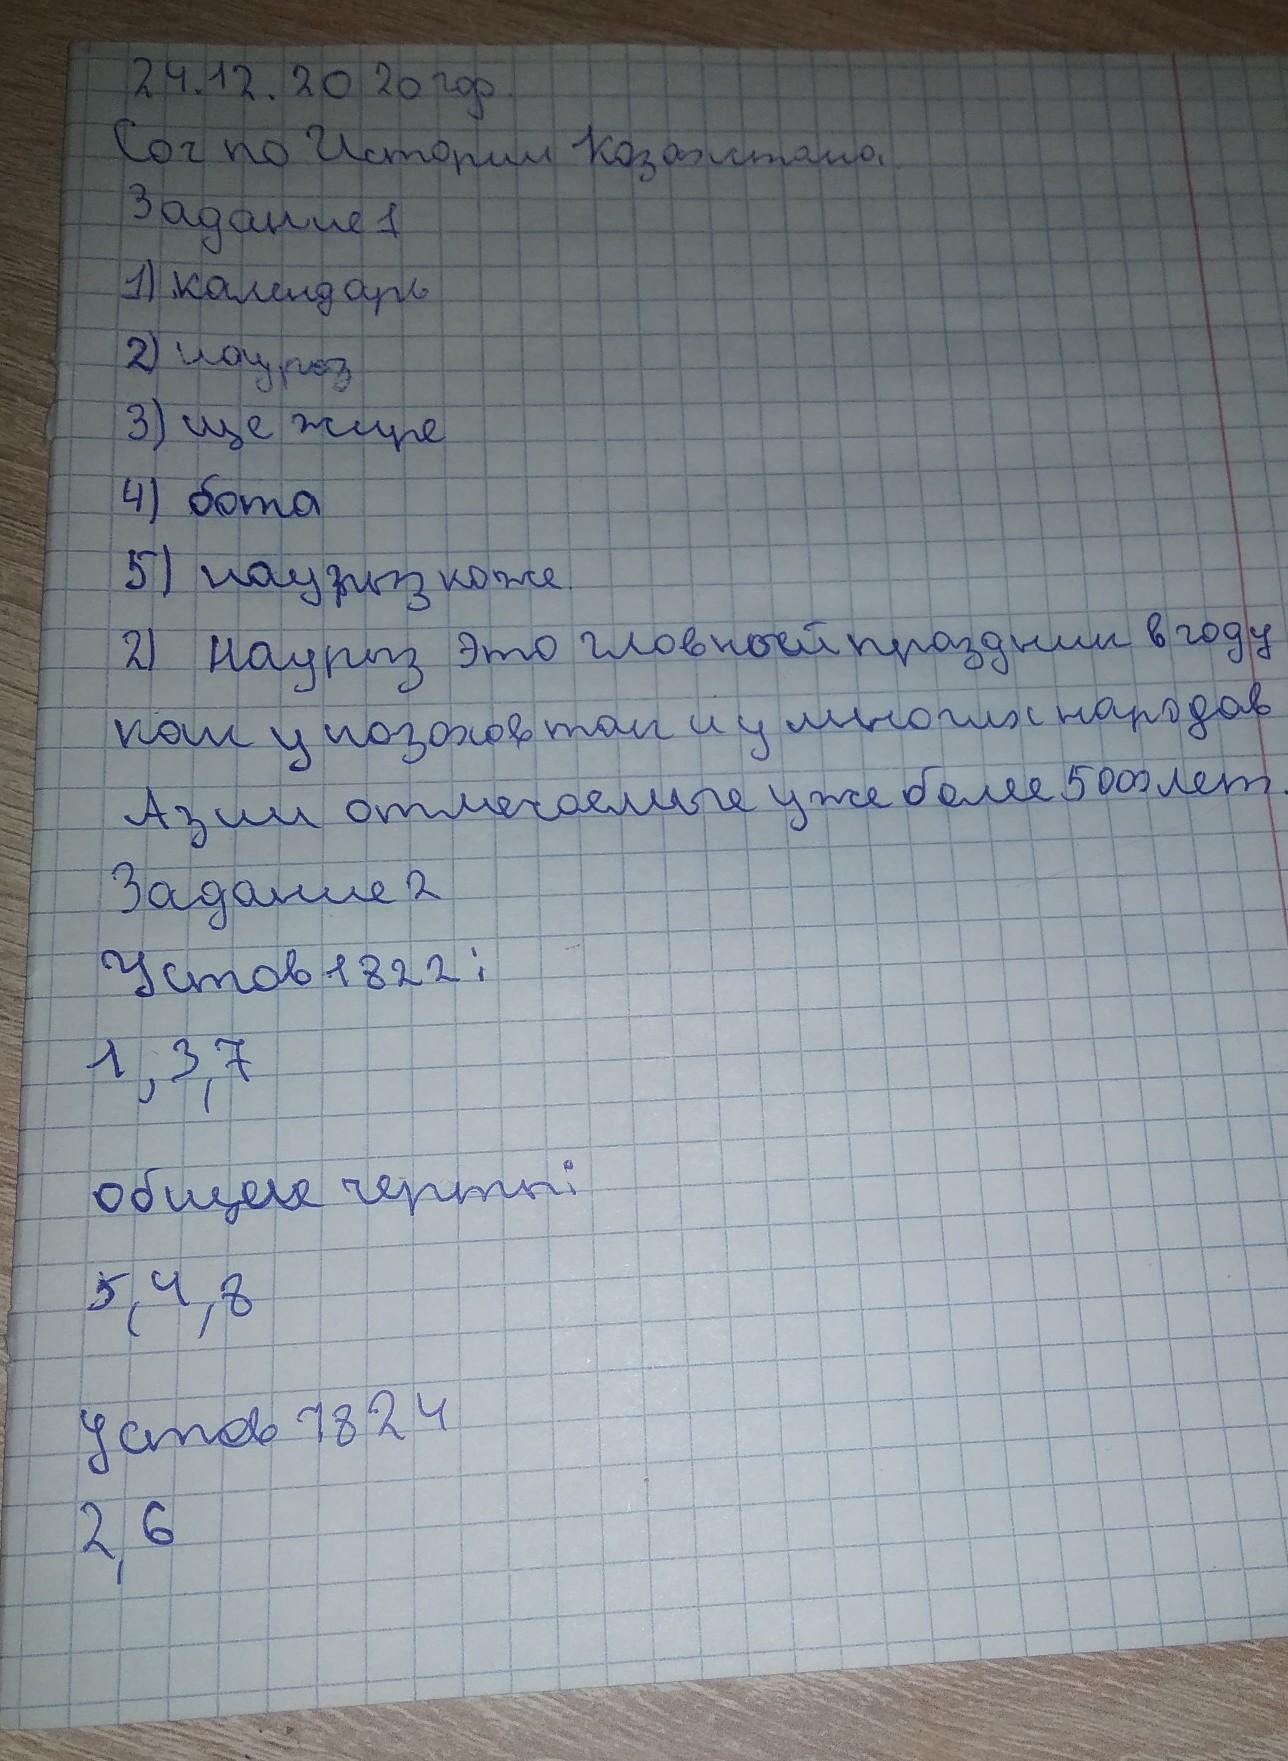 24.12.2020 год.
Соч по Истории Казахстана.
Задание 1
1) календарь
2) наурыз
3) ще жире
4) бота
5) наурыз коже.
2) Наурыз это гловный праздник в году
как у козахов так и у многих народов
Азии отмечаемые уже более 5000 лет.
Задание 2
Устав 1822:
1, 3, 7
общие черты:
5, 4, 8
Устав 1824
2, 6